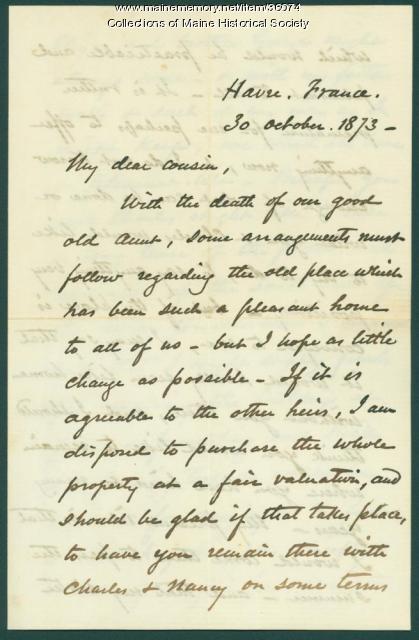 www.mainememory.net/item/36074
Collections of Maine Historical Society
Havre. France.
30 october. 1873 -
My dear cousin,
With the death of our good
old aunt, some arrangements must
follow regarding the old place which
has been such a pleasant home
to all of us - but I hope as little
change as possible - If it is
agreeable to the other heirs, I am
disposed to purchase the whole
property at a fair valuation, and
should be glad if that takes place,
to have you remain there with
Charles & Nancy on some terms